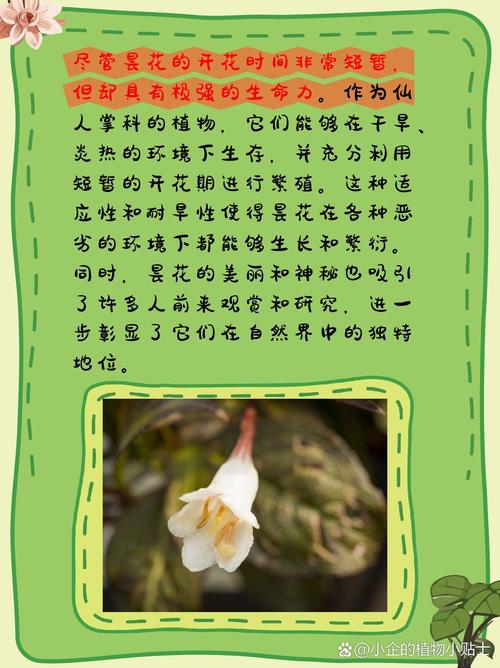 尽管昙花的开花时间非常短暂，
但却具有极强的生命力。作为仙
人掌科的植物，它们能够在干旱、
炎热的环境下生存，并充分利用
短暂的开花期进行繁殖。这种适
应性和耐旱性使得昙花在各种恶
劣的环境下都能够生长和繁衍。
同时，昙花的美丽和神秘也吸引
了许多人前来观赏和研究，进一
步彰显了它们在自然界中的独特
地位。
小企的植物小贴士